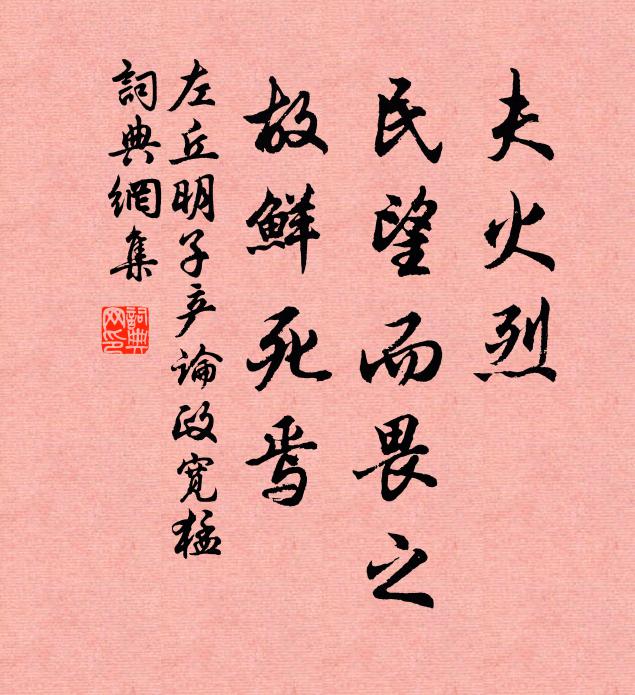 夫火烈
民望而畏之
故鮮死焉
左丘明子产論政寬猛
詞典網集
詞典网印